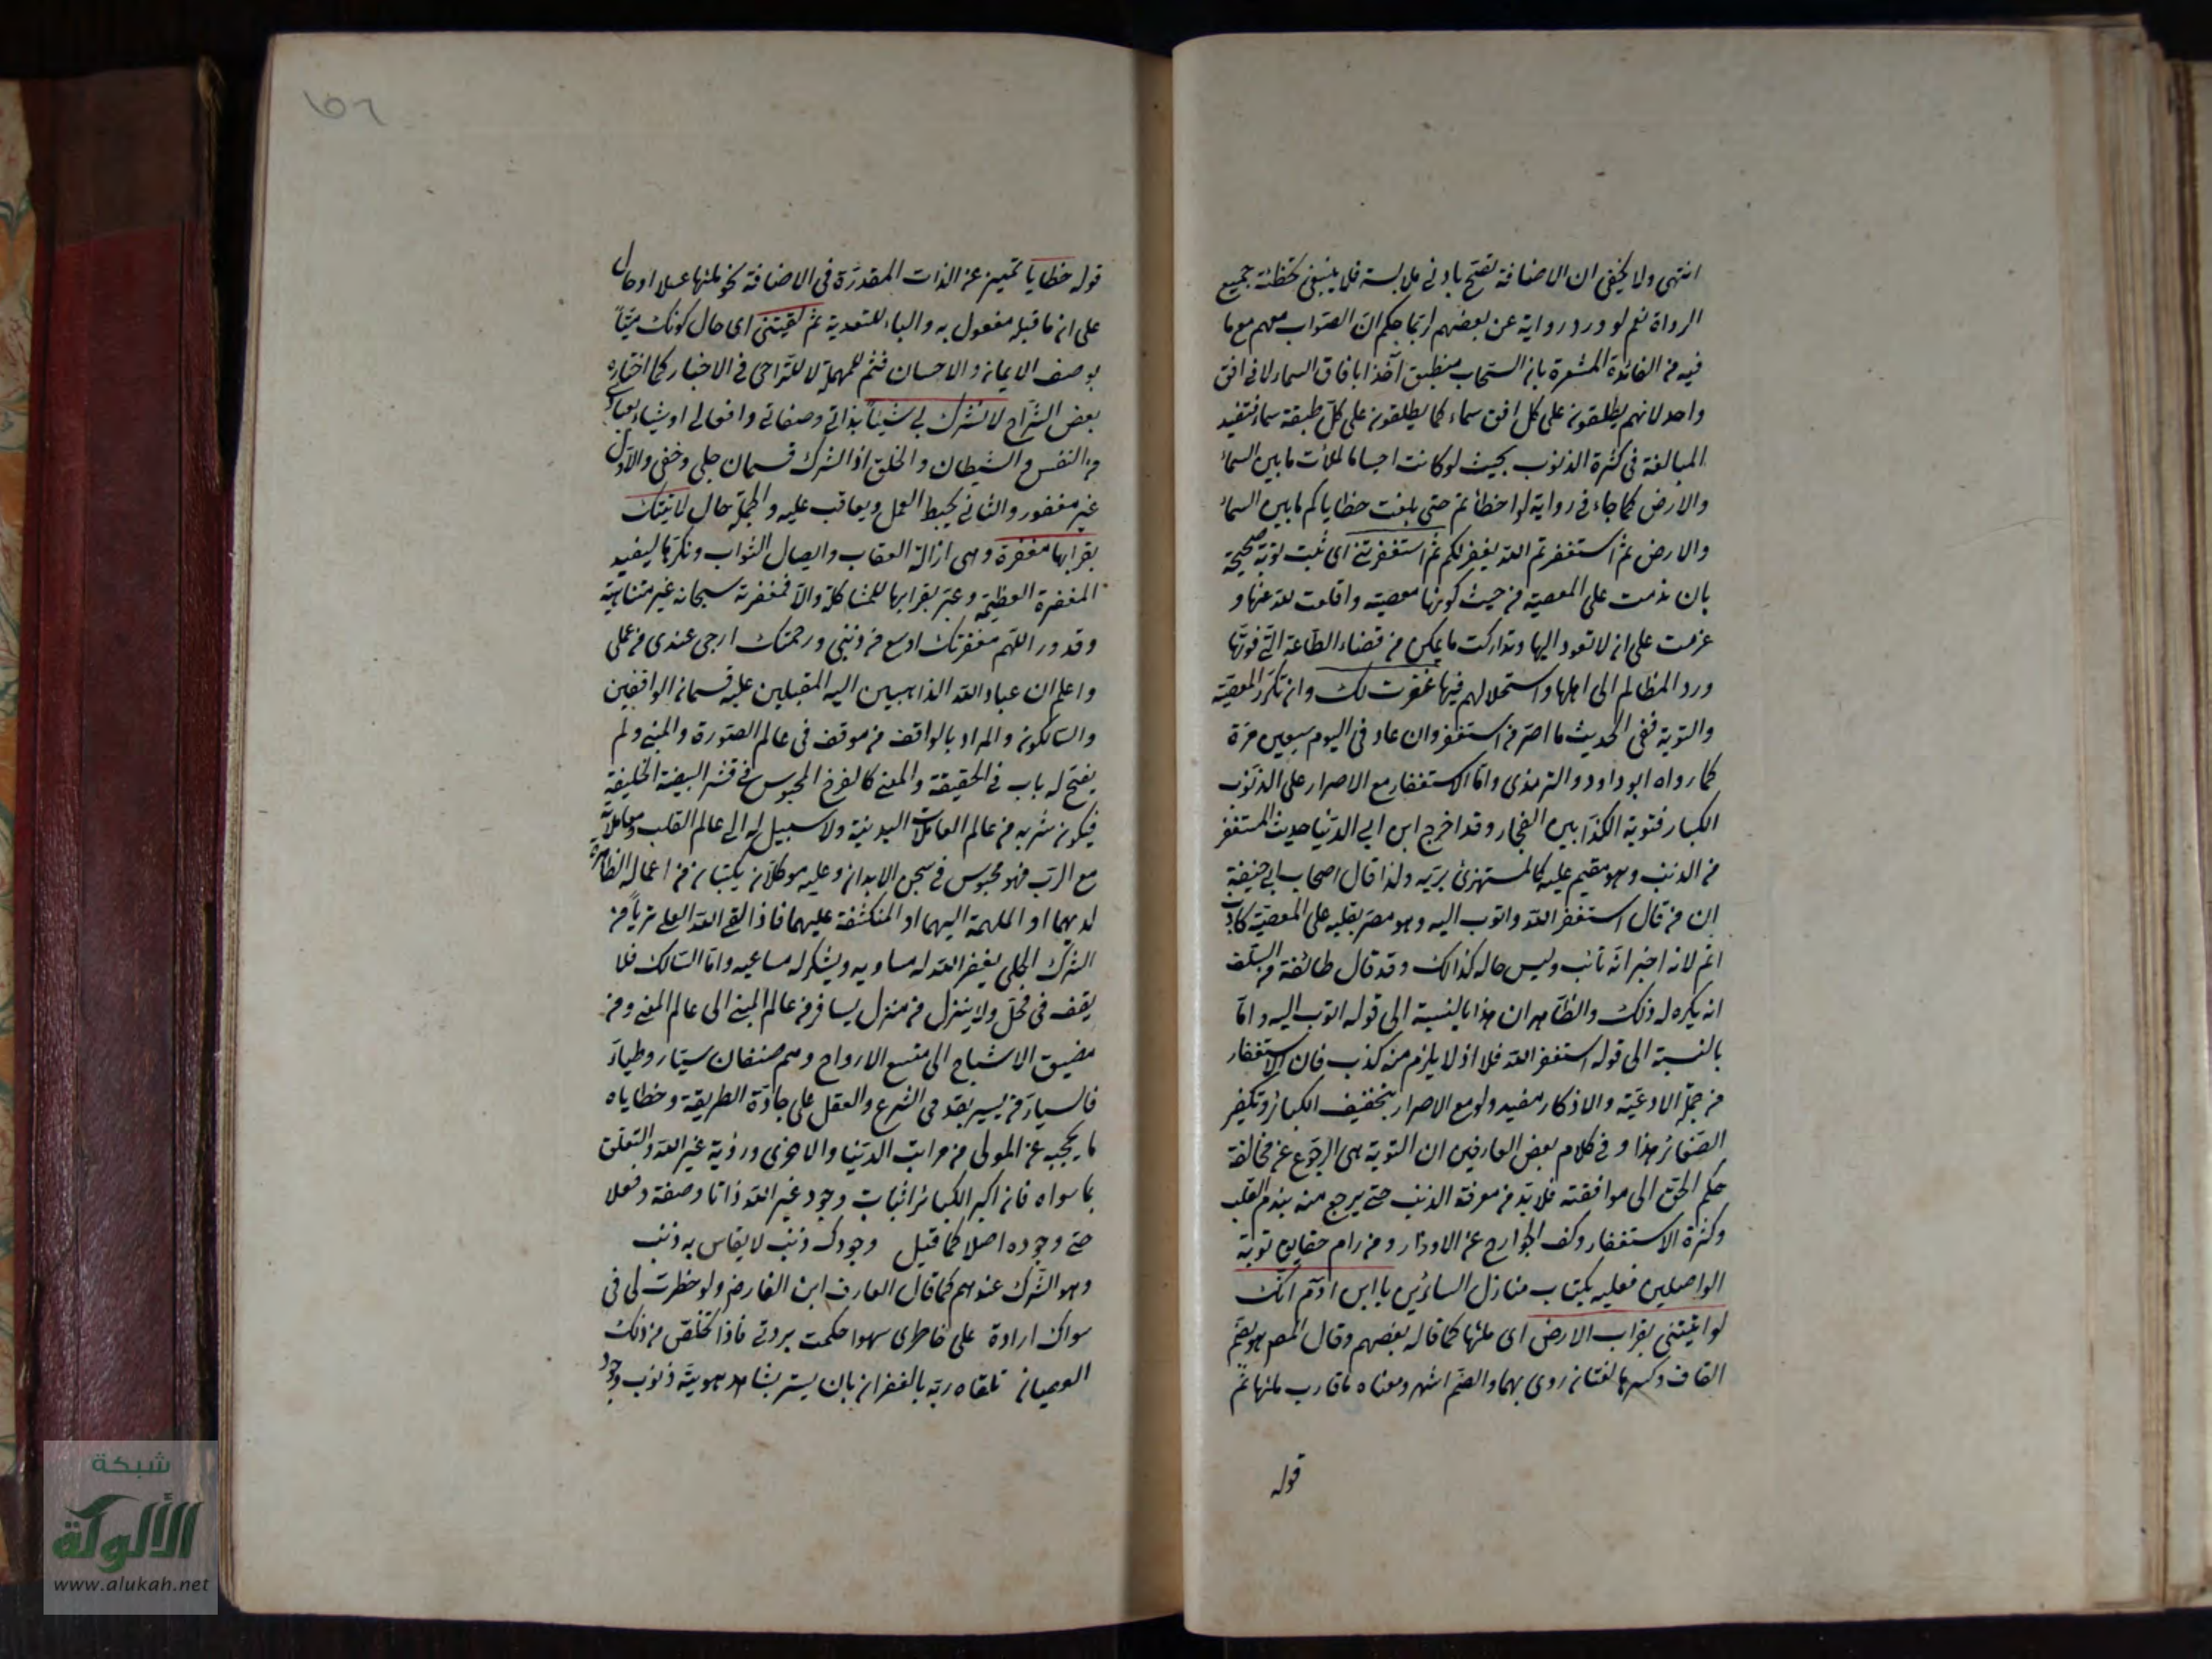 انتهى ولا يخفى ان الاضافة تصح بادنى ملابسة فلا ينبغى تخطئة جميع
الرواة نعم لو ورد رواية عن بعضهم لربما حكم ان الصواب معهم مع ما
فيه من الفائدة المشعرة بان السحاب منطبق آخذ بافاق السماء لا فى افق
واحد لانهم يطلقون على كل افق سماء كما يطلقون على كل طبقة سماء فتفيد
المبالغة فى كثرة الذنوب بحيث لو كانت اجساما لملأت ما بين السماء
والارض كما جاء فى رواية لو اخطأتم حتى بلغت خطاياكم ما بين السماء
والارض ثم استغفرتم الله يغفر لكم ثم استغفرتنى اى تبت توبة صحيحة
بان ندمت على المعصية من حيث كونها معصية واقلعت لله عنها و
عزمت على ان لا تعود اليها وتداركت ما يمكن من قضاء الطاعة التى فوتها
ورد المظالم الى اهلها واستحلالهم فيها غفرت لك وان تكرر المعصية
والتوبة ففى الحديث ما اصر من استغفر وان عاد فى اليوم سبعين مرة
كما رواه ابو داود والترمذى واما الاستغفار مع الاصرار على الذنوب
الكبار فتوبة الكذابين الفجار وقد اخرج ابن ابى الدنيا حديث المستغفر
من الذنب وهو مقيم عليه كالمستهزئ بربه ولذا قال اصحاب ابى حنيفة
ان من قال استغفر الله واتوب اليه وهو مصر بقلبه على المعصية كاذب
اثم لانه اخبر انه تائب وليس حاله كذلك وقد قال طائفة من السلف
انه يكره له ذلك والظاهر ان هذا بالنسبة الى قوله اتوب اليه واما
بالنسبة الى قوله استغفر الله فلا اذ لا يلزم منه كذب فان الاستغفار
من جملة الادعية والاذكار مفيد ولو مع الاصرار بتخفيف الكبائر وتكفير
الصغائر هذا وفى كلام بعض العارفين ان التوبة هى الرجوع عن مخالفة
حكم الحق الى موافقته فلا بد من معرفة الذنب حتى يرجع منه بندم القلب
وكثرة الاستغفار وكف الجوارح عن الاوزار ومن رام حقايق توبة
الواصلين فعليه بكتاب منازل السائرين يا ابن ادم انك
لو اتيتنى بقراب الارض اى ملئها كما قاله بعضهم وقال المص هو بضم
القاف وكسرها لغتان روى بهما والضم اشهر ومعناه ما قارب ملئها ثم
قوله
قوله خطايا تمييز عن الذات المقدرة فى الاضافة نحو ملئها عسلا او حال
على ان ما قبله مفعول به والباء للتعدية ثم لقيتنى اى حال كونك ميتا
بوصف الايمان والاحسان فثم للمهلة لا للتراخى فى الاخبار كما اختاره
بعض الشراح لا تشرك بى شيئا بذاتى وصفاتى وافعالى او شياء بعبادتى
من النفس والشيطان والخلق اذ الشرك قسمان جلى وخفى والاول
غير مغفور والثانى يحبط العمل ويعاقب عليه والجملة حال لاتيتك
بقرابها مغفرة وهى ازالة العقاب وايصال الثواب ونكرها ليفيد
المغفرة العظيمة وعبر بقرابها للمشاكلة والا فمغفرته سبحانه غير متناهية
وقد ورد اللهم مغفرتك اوسع من ذنبى ورحمتك ارجى عندى من عملى
واعلم ان عباد الله الذاهبين اليه المقبلين عليه قسمان الواقفين
والسالكون والمراد بالواقف من موقف فى عالم الصورة والمبنى ولم
يفتح له باب فى الحقيقة والمعنى كالفرخ المحبوس فى قشر البيضة الخليفة
فيكون شربه من عالم المعاملات البدنية ولا سبيل له الى عالم القلب ومعاملاته
مع الرب فهو محبوس فى سجن الابدان وعليه موكلان يكتبان من اعماله الظاهرة
لديهما او الملهمة اليهما او المنكشفة عليهما فاذا لقى الله العلى متبريا من
الشرك الجلى يغفر الله له مساويه ويشكر له مساعيه واما السالك فلا
يقف فى محل ولا ينزل من منزل يسافر من عالم المبنى الى عالم المعنى ومن
مضيق الاشباح الى متسع الارواح وهم صنفان سيار وطيار
فالسيار من يسير بقدمى الشرع والعقل على جادة الطريقة وخطاياه
ما يحجبه عن المولى من مراتب الدنيا والاخرى ورؤية غير الله والتعلق
بما سواه فان اكبر الكبائر اثبات وجود غير الله ذاتا وصفة وفعلا
حتى وجوده اصلا كما قيل وجودك ذنب لا يقاس به ذنب
وهو الشرك عندهم كما قال العارف ابن الفارض ولو خطرت لى فى
سواك ارادة على خاطرى سهوا حكمت بردتى فاذا تخلص من ذلك
العصيان تلقاه ربه بالغفران بان يستر بشاهد هويته ذنوب وجود
شبكة
الألوكة
www.alukah.net